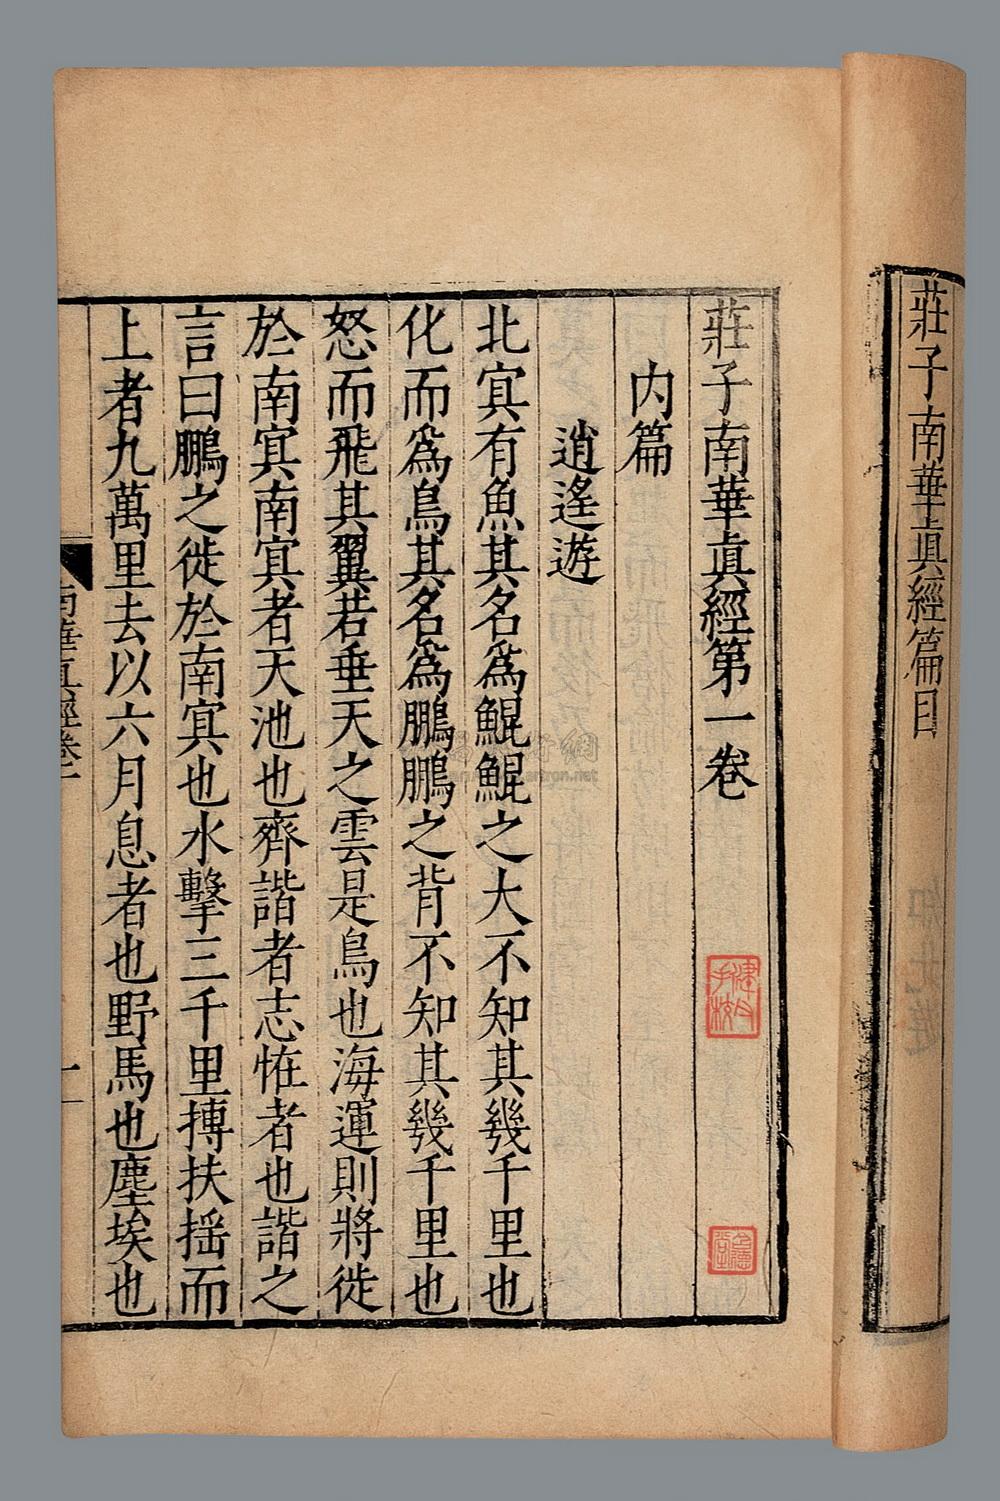 莊子南華眞經篇目
莊子南華眞經第一卷
内篇
逍遙遊
北㝠有魚其名爲鯤鯤之大不知其幾千里也
化而爲鳥其名爲鵬鵬之背不知其幾千里也
怒而飛其翼若垂天之雲是鳥也海運則將徙
於南㝠南㝠者天池也齊諧者志恠者也諧之
言曰鵬之徙於南㝠也水擊三千里摶扶摇而
上者九萬里去以六月息者也野馬也塵埃也
南華真經卷一
一